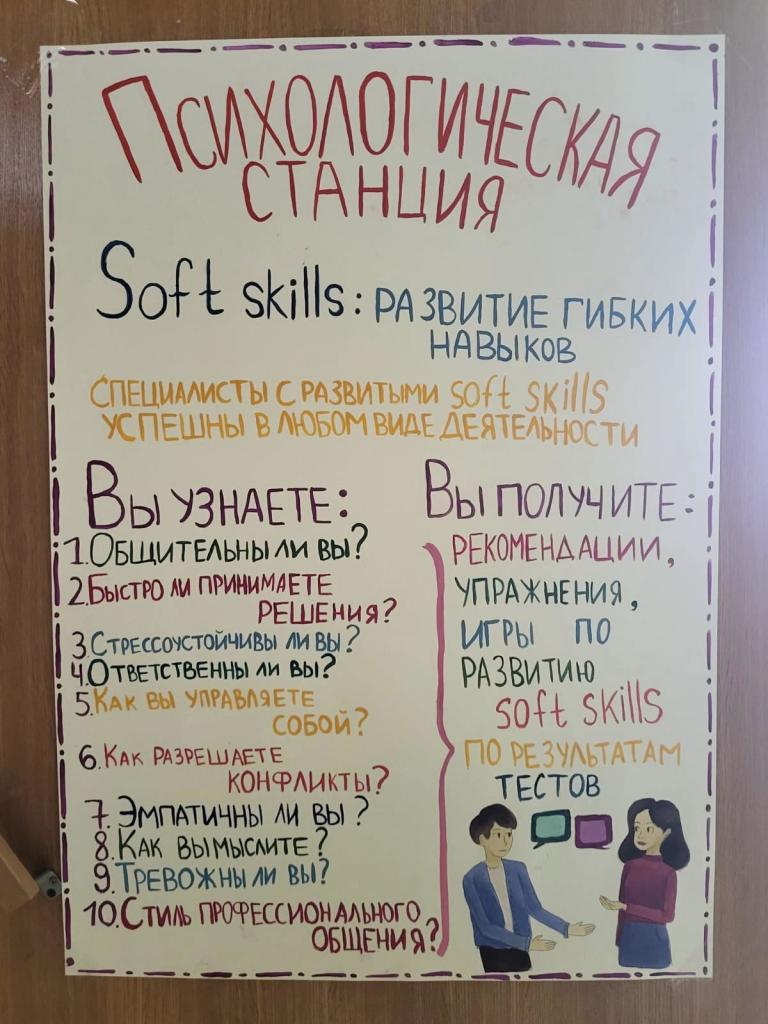 ПСИХОЛОГИЧЕСКАЯ
СТАНЦИЯ
Soft skills: РАЗВИТИЕ ГИБКИХ
НАВЫКОВ
СПЕЦИАЛИСТЫ С РАЗВИТЫМИ soft skills
УСПЕШНЫ В ЛЮБОМ ВИДЕ ДЕЯТЕЛЬНОСТИ
ВЫ УЗНАЕТЕ:
1.ОБЩИТЕЛЬНЫ ЛИ ВЫ?
2.БЫСТРО ЛИ ПРИНИМАЕТЕ
РЕШЕНИЯ?
3.СТРЕССОУСТОЙЧИВЫ ЛИ ВЫ?
4.ОТВЕТСТВЕННЫ ЛИ ВЫ?
5.КАК ВЫ УПРАВЛЯЕТЕ
СОБОЙ?
6.КАК РАЗРЕШАЕТЕ
КОНФЛИКТЫ?
7.ЭМПАТИЧНЫ ЛИ ВЫ?
8.КАК ВЫ МЫСЛИТЕ?
9.ТРЕВОЖНЫ ЛИ ВЫ?
10.СТИЛЬ ПРОФЕССИОНАЛЬНОГО
ОБЩЕНИЯ?
ВЫ ПОЛУЧИТЕ:
РЕКОМЕНДАЦИИ,
УПРАЖНЕНИЯ,
ИГРЫ ПО
РАЗВИТИЮ
soft skills
ПО РЕЗУЛЬТАТАМ
ТЕСТОВ